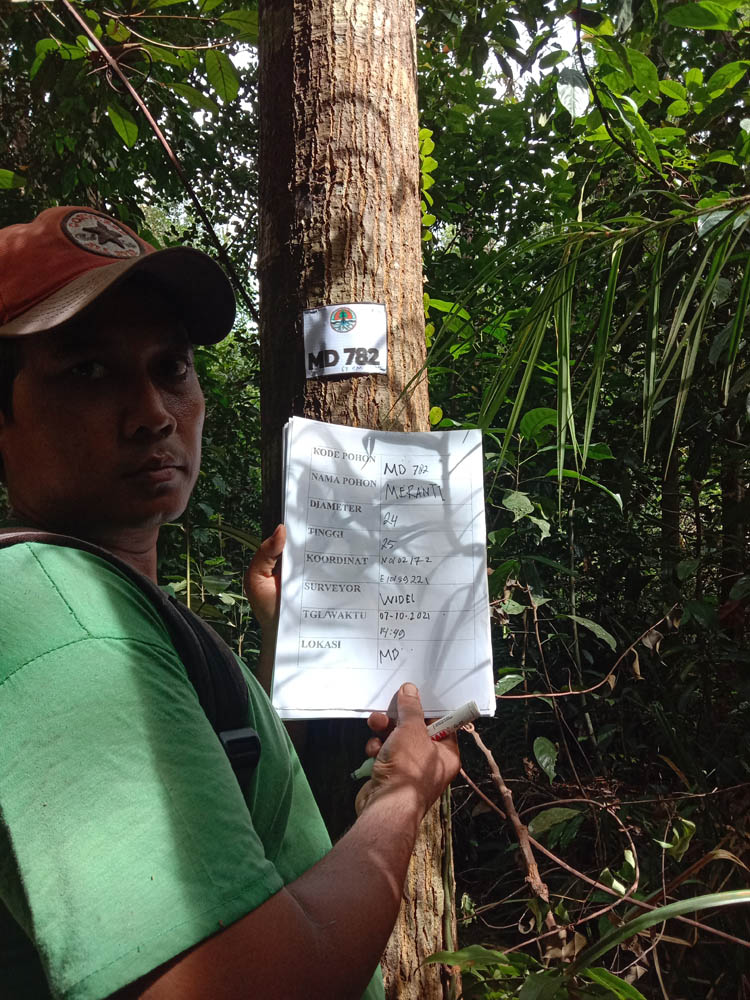 MD 782
KODE POHON MD 782
NAMA POHON MERANTI
DIAMETER 24
TINGGI 25
KOORDINAT N0102 17.2
E101 99 221
SURVEYOR WIDEL
TGL/WAKTU 07-10-2021
14:49
LOKASI MD